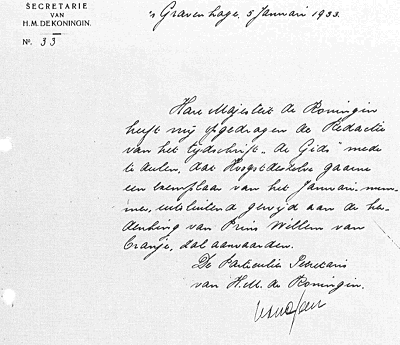 SECRETARIE
VAN
H. M. DE KONINGIN.
Nº. 33
's Gravenhage, 5 Januari 1933.
Hare Majesteit de Koningin
heeft mij opgedragen de Redactie
van het tijdschrift „de Gids" mede
te deelen, dat Hoogstdezelve gaarne
een exemplaar van het Januari-num-
mer, uitsluitend gewijd aan de her-
denking van Prins Willem van
Oranje, zal aanvaarden.
De Particulier Secretaris
van H.M. de Koningin.